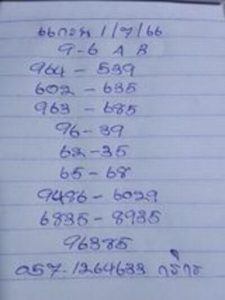 1/7/66
9-6 A B
964 - 539
602 - 635
963 - 685
96 - 39
62 - 35
65 - 68
9486 - 6029
6835 - 8935
96385
057-1264633